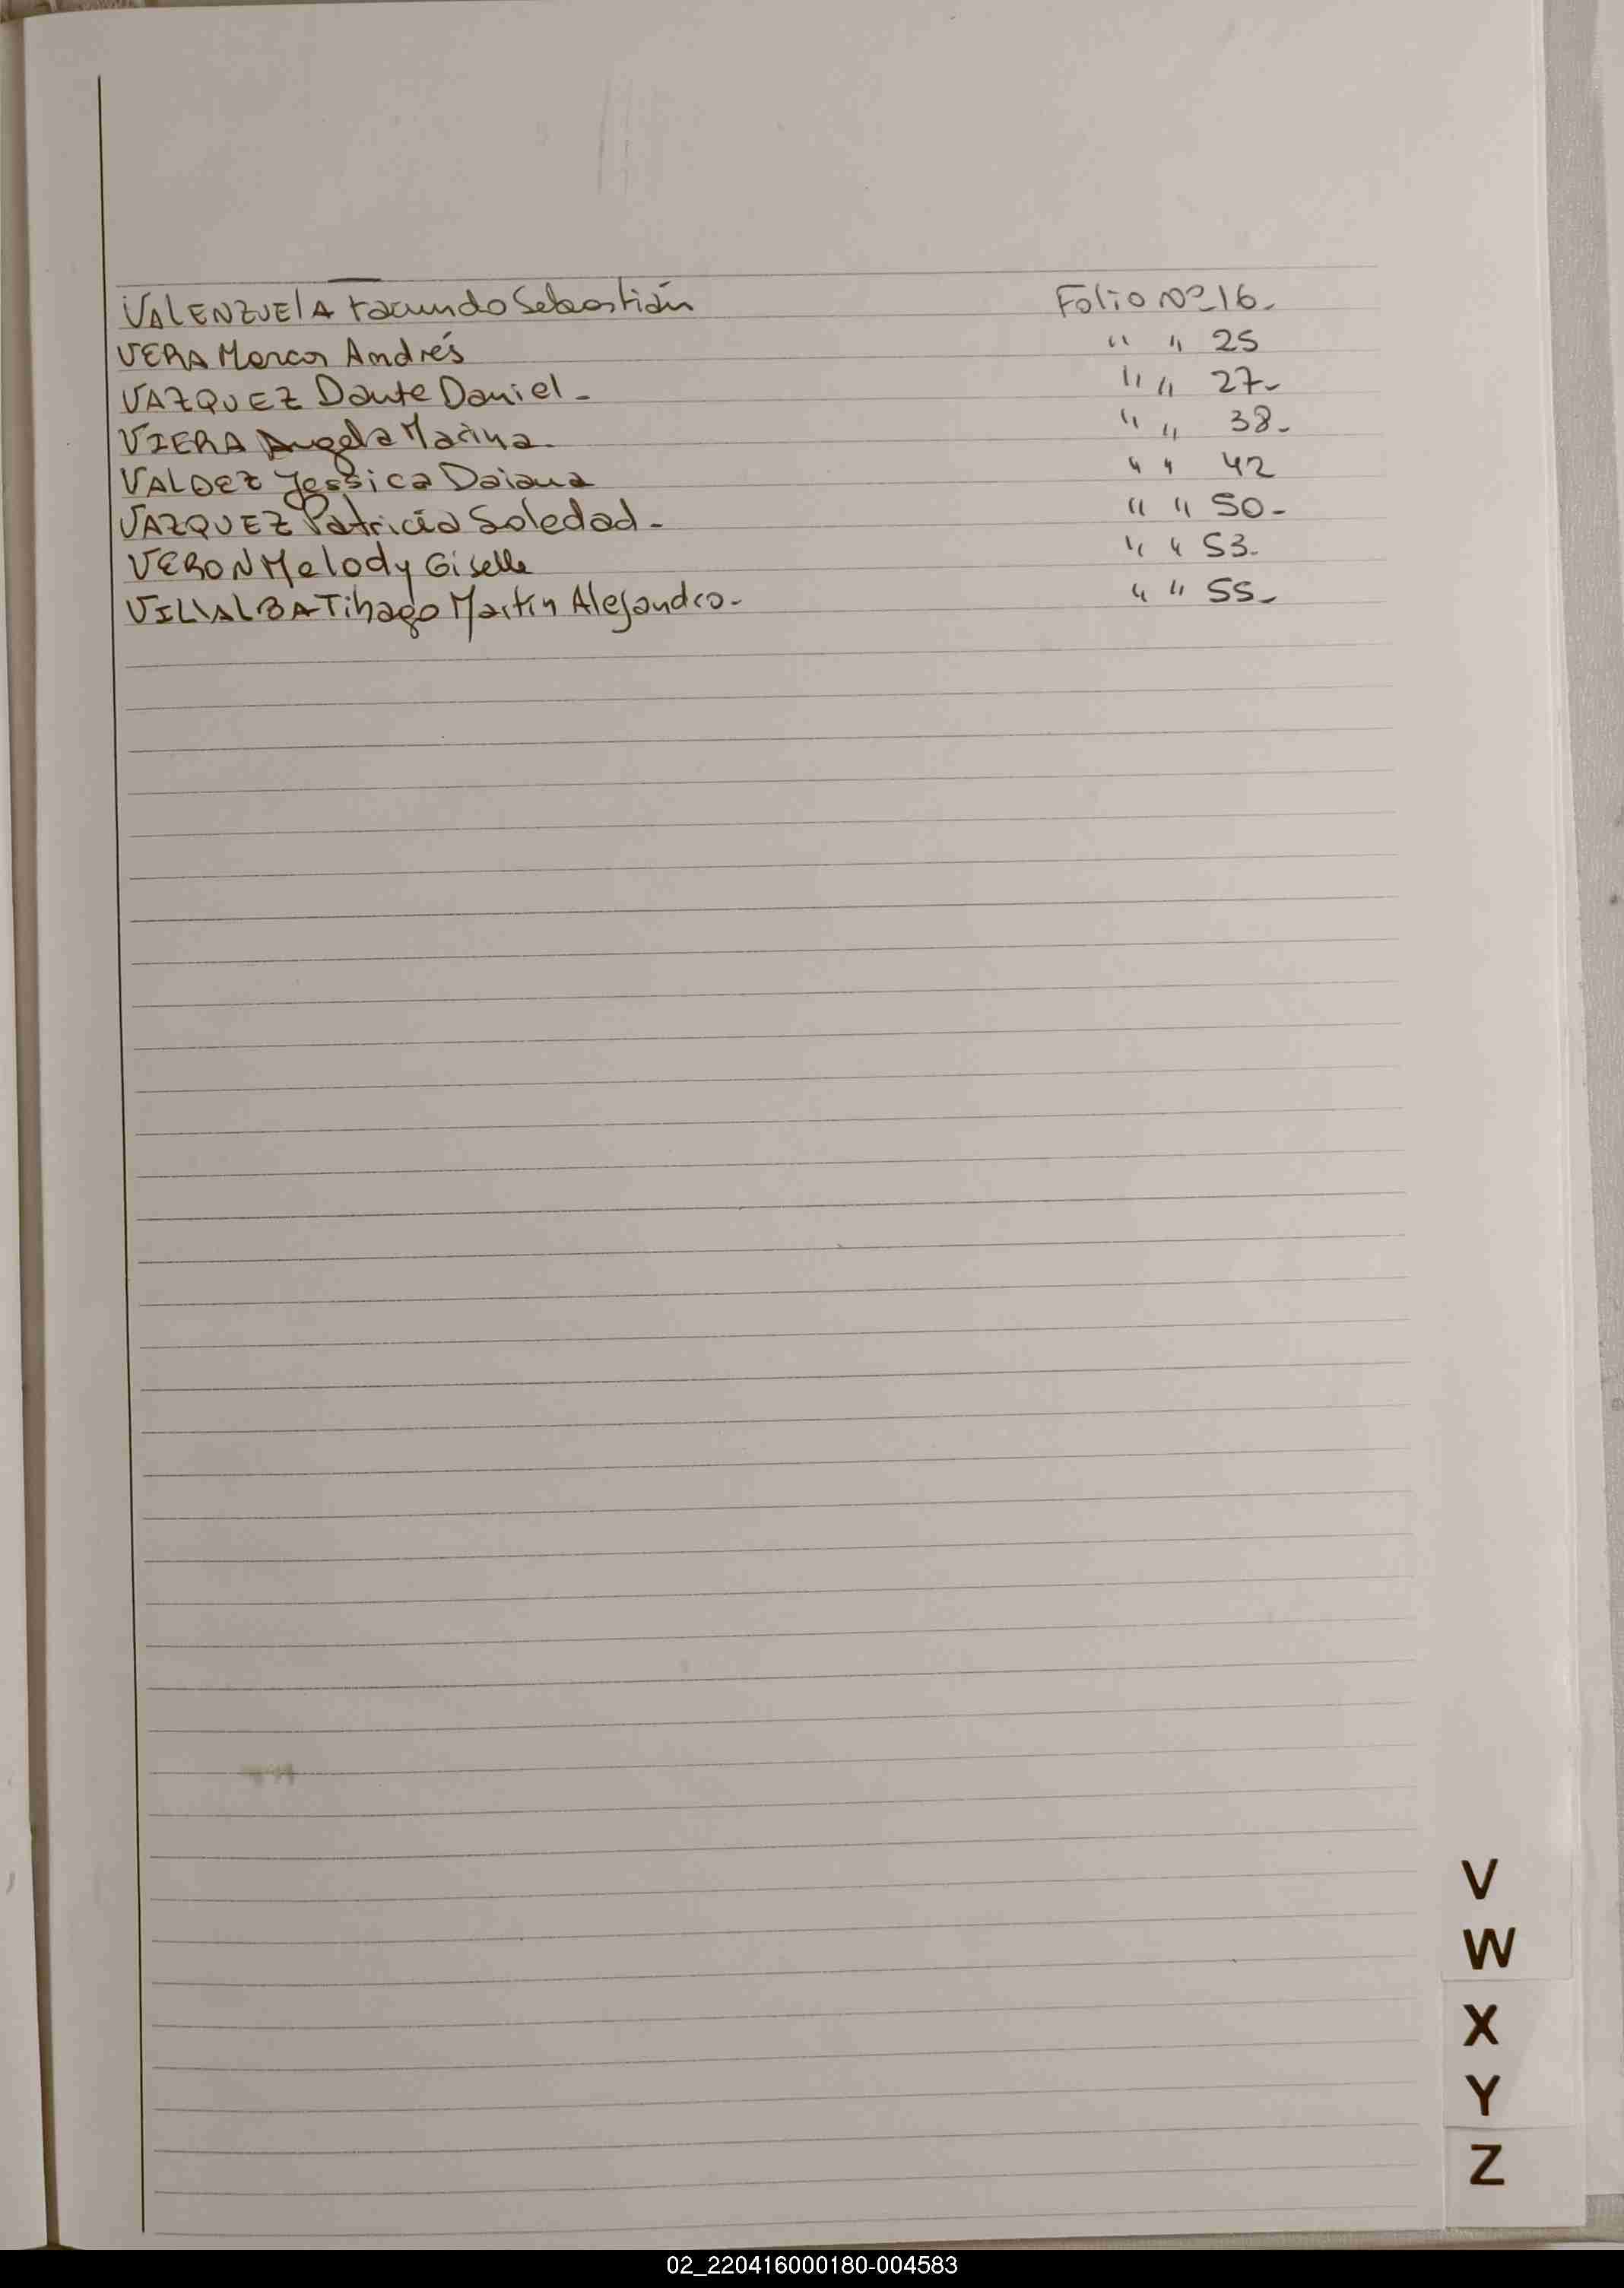 VALENZUELA Facundo Sebastián Folio Nº 16.
VERA Marcos Andrés " " 25
VAZQUEZ Dante Daniel - " " 27-
VIERA Angela Marina. " " 38-
VALDEZ Jessica Daiana " " 42
VAZQUEZ Patricia Soledad - " " 50-
VERON Melody Giselle " " 53.
VILLALBA Tihago Martín Alejandro- " " 55-
V
W
X
Y
Z
02_220416000180-004583